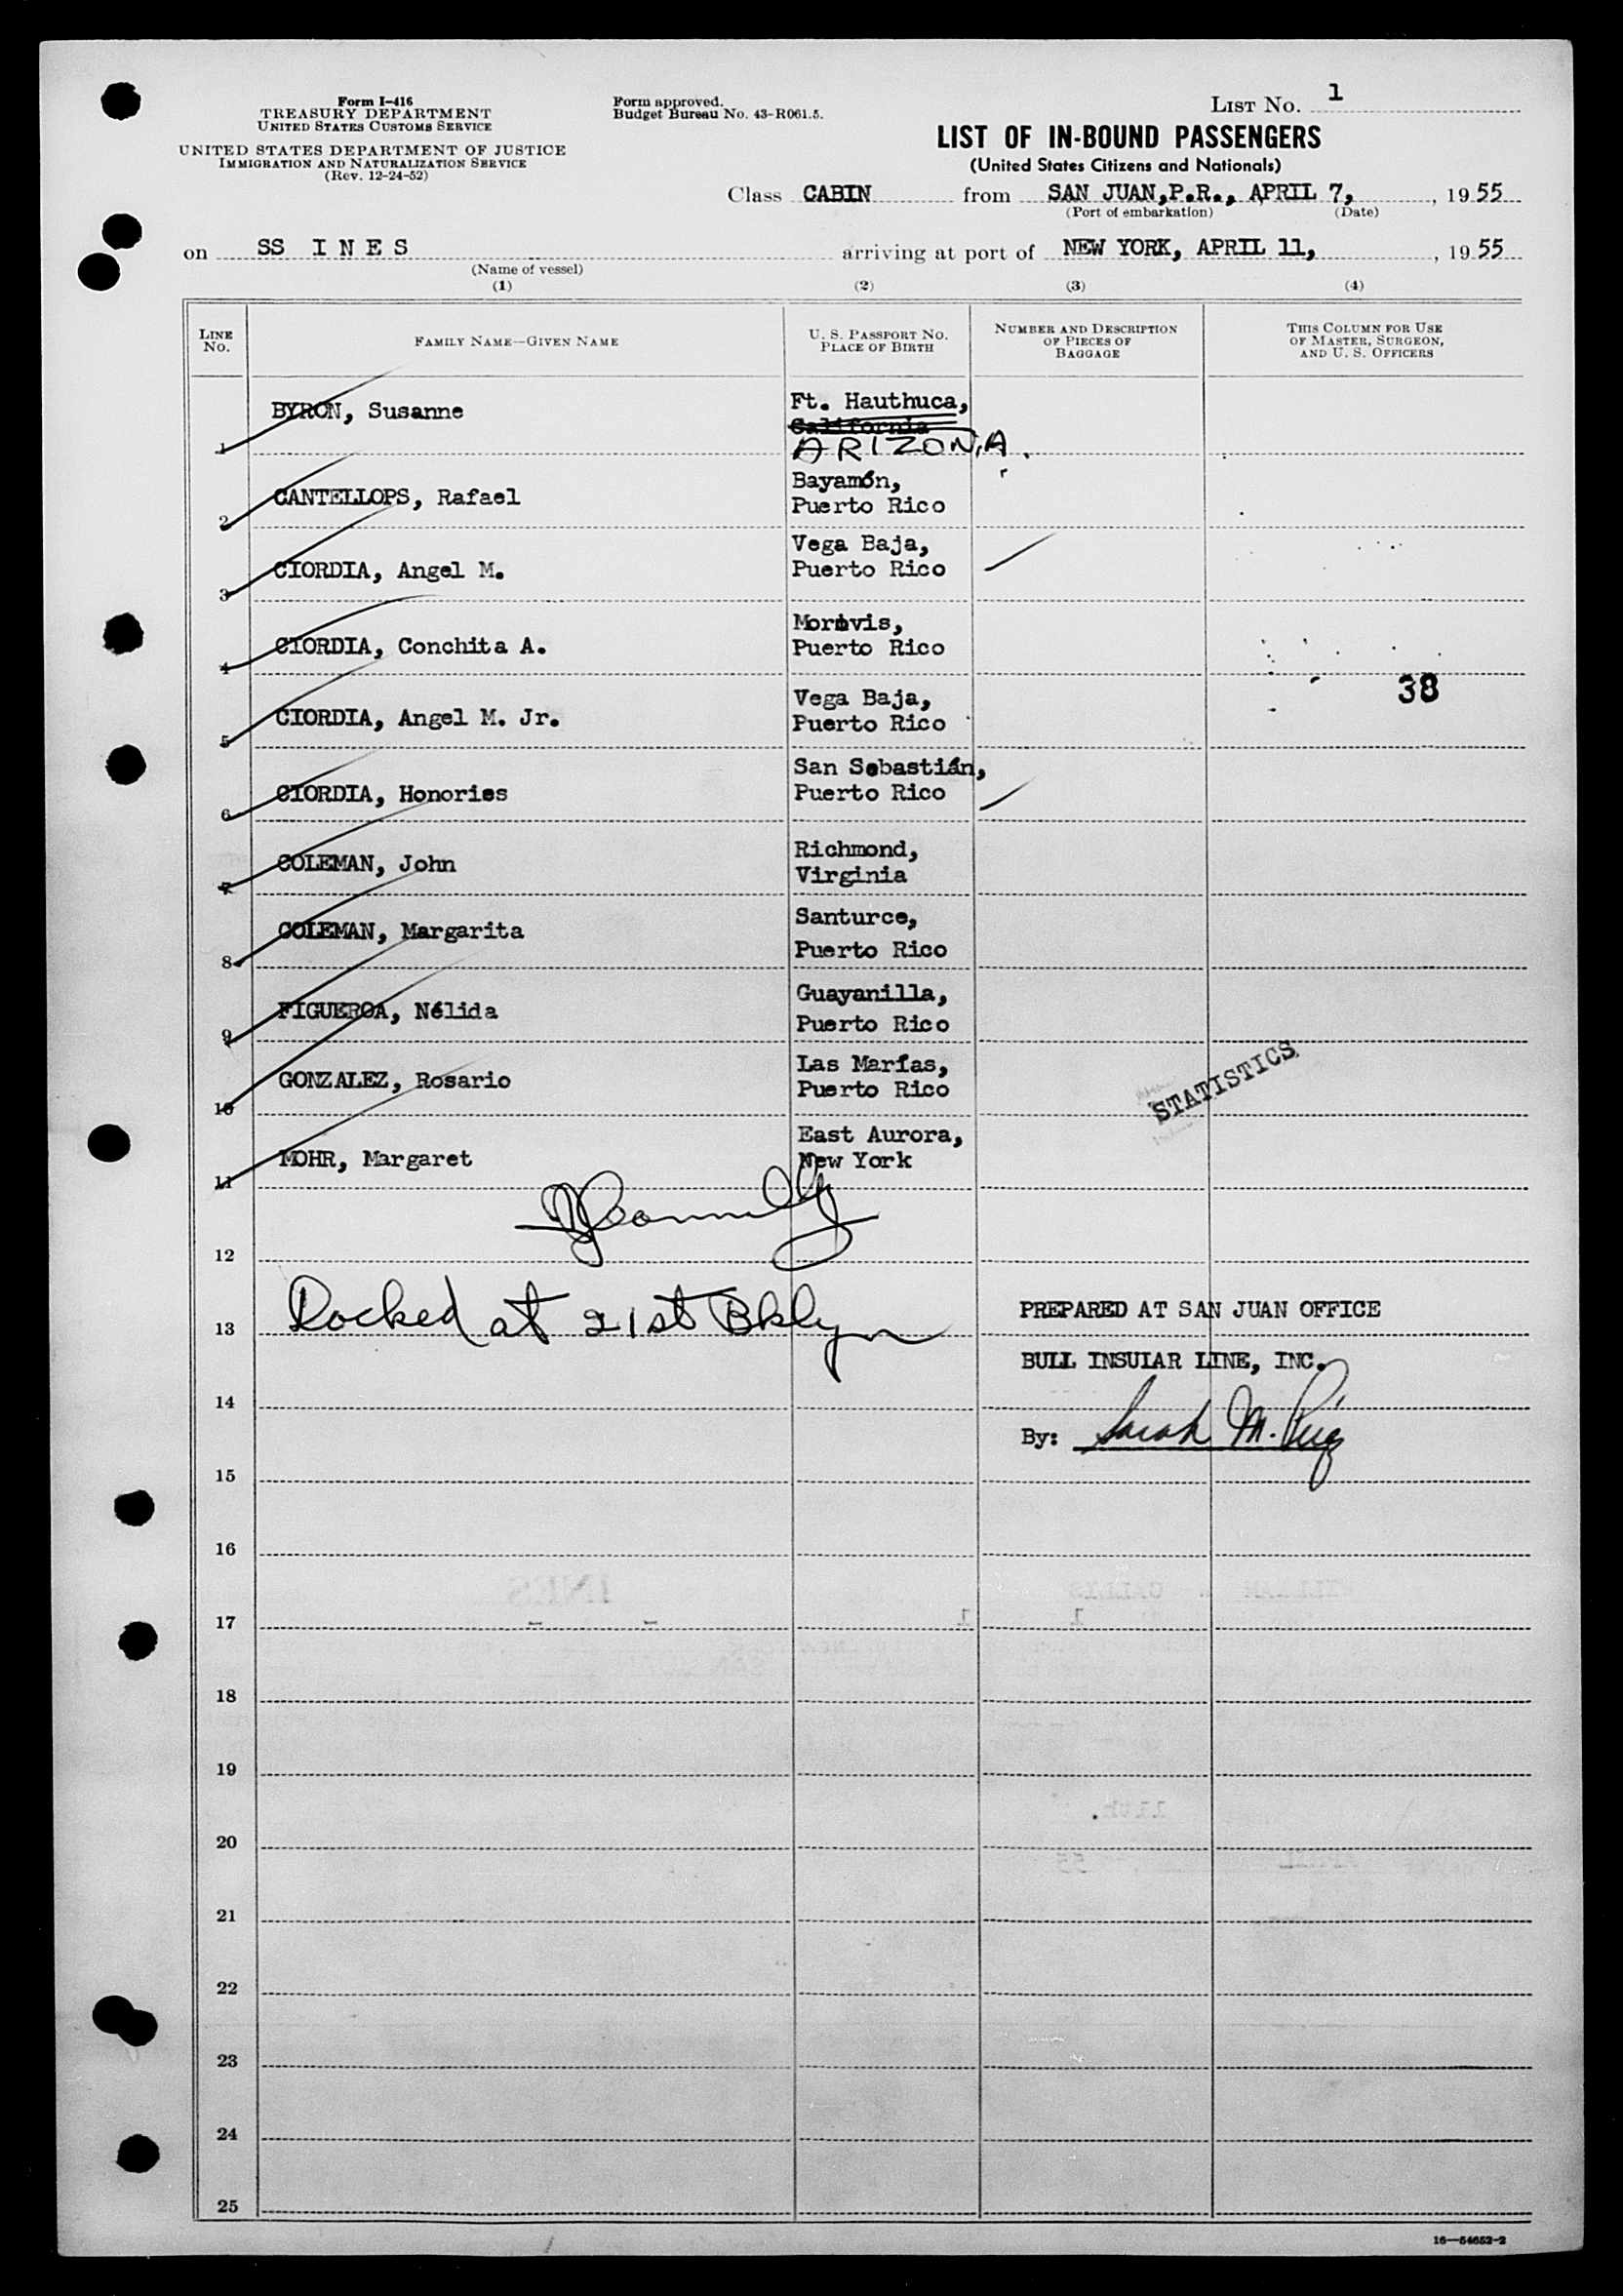 Form I-416
TREASURY DEPARTMENT
UNITED STATES CUSTOMS SERVICE
UNITED STATES DEPARTMENT OF JUSTICE
IMMIGRATION AND NATURALIZATION SERVICE
(Rev. 12-24-52)
Form approved.
Budget Bureau No. 43-R061.5.
LIST NO. 1
LIST OF IN-BOUND PASSENGERS
(United States Citizens and Nationals)
Class CABIN from SAN JUAN,P.R., APRIL 7, , 19 55
(Port of embarkation) (Date)
on SS I N E S arriving at port of NEW YORK, APRIL 11, , 19 55
(Name of vessel)
(1) (2) (3) (4)
LINE NO. FAMILY NAME—GIVEN NAME U. S. PASSPORT NO. PLACE OF BIRTH NUMBER AND DESCRIPTION OF PIECES OF BAGGAGE THIS COLUMN FOR USE OF MASTER, SURGEON, AND U. S. OFFICERS
1 BYRON, Susanne Ft. Hauthuca,
California
ARIZONA.
2 CANTELLOPS, Rafael Bayamón,
Puerto Rico
3 CIORDIA, Angel M. Vega Baja,
Puerto Rico
4 CIORDIA, Conchita A. Morovis,
Puerto Rico
38
5 CIORDIA, Angel M. Jr. Vega Baja,
Puerto Rico
6 CIORDIA, Honories San Sebastián,
Puerto Rico
7 COLEMAN, John Richmond,
Virginia
8 COLEMAN, Margarita Santurce,
Puerto Rico
9 FIGUEROA, Nélida Guayanilla,
Puerto Rico
10 GONZALEZ, Rosario Las Marías,
Puerto Rico
STATISTICS
11 MOHR, Margaret East Aurora,
New York
12
13 Docked at 21st Bklyn PREPARED AT SAN JUAN OFFICE
BULL INSULAR LINE, INC.
14
By: Sarah M. Puig
15
16
INES
17 - - 1 1
18
19
20
21
22
23
24
25
16—54652-2